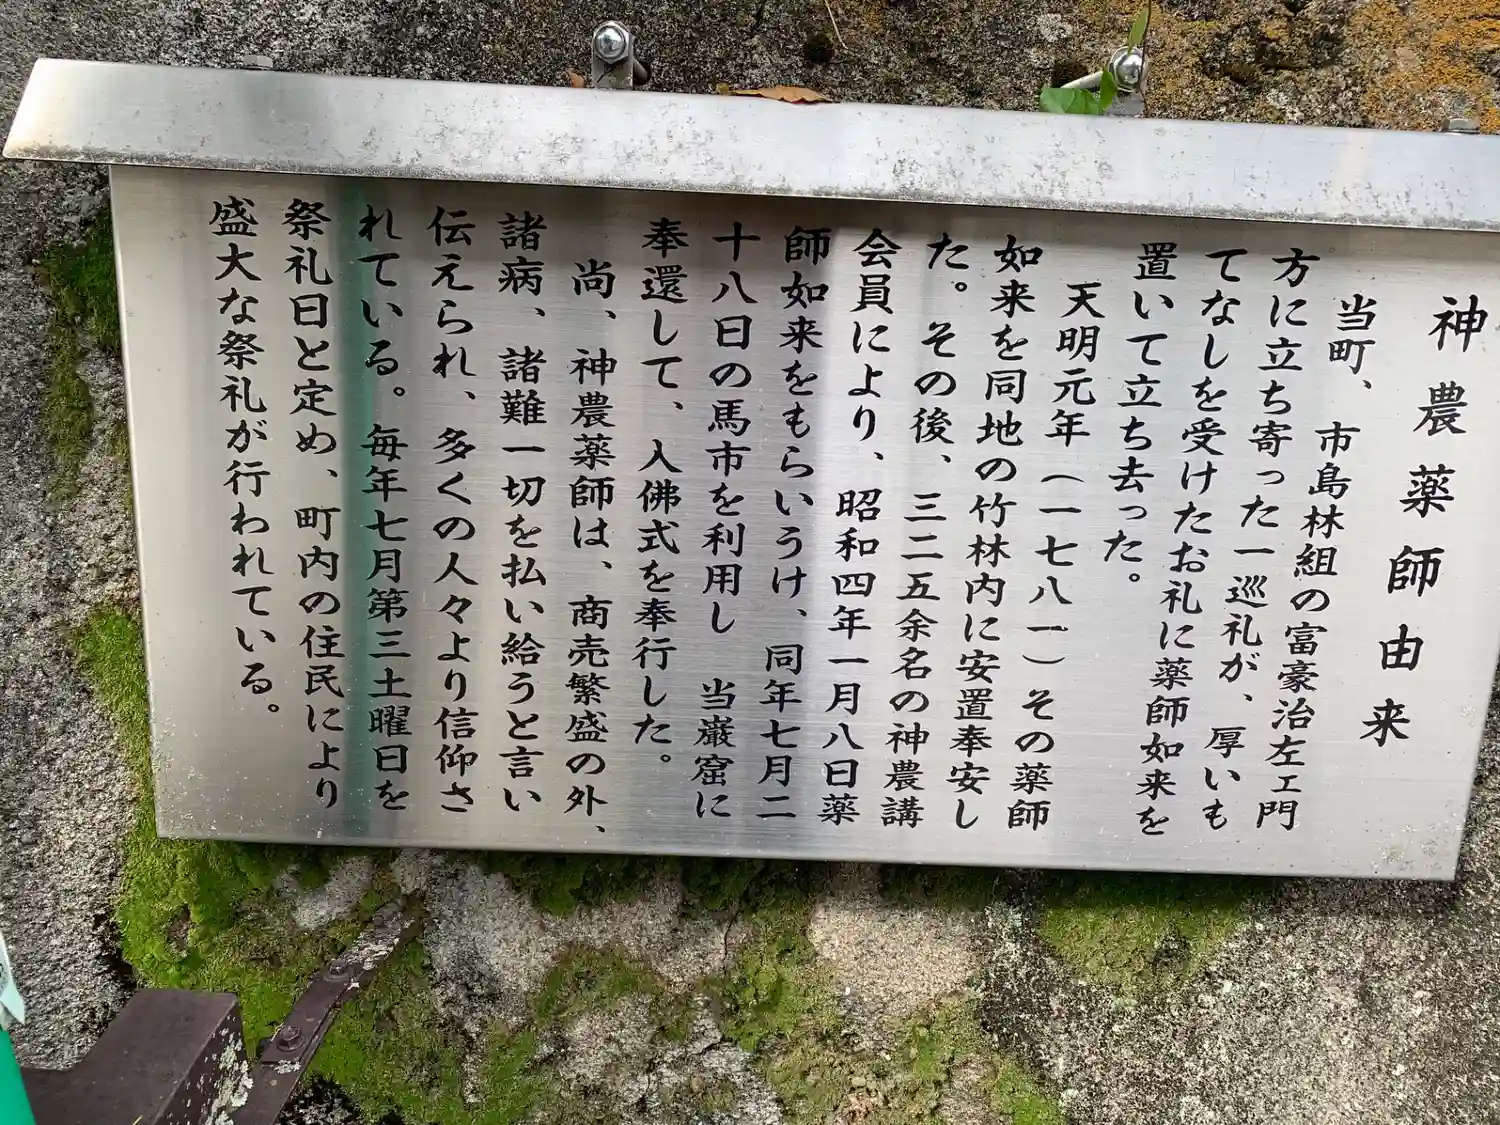 神農薬師由来
当町、市島林組の富豪治左エ門
方に立ち寄った一巡礼が、厚いも
てなしを受けたお礼に薬師如来を
置いて立ち去った。
天明元年（一七八一）その薬師
如来を同地の竹林内に安置奉安し
た。その後、三二五余名の神農講
会員により、昭和四年一月八日薬
師如来をもらいうけ、同年七月二
十八日の馬市を利用し　当巌窟に
奉還して、入佛式を奉行した。
尚、神農薬師は、商売繁盛の外、
諸病、諸難一切を払い給うと言い
伝えられ、多くの人々より信仰さ
れている。毎年七月第三土曜日を
祭礼日と定め、町内の住民により
盛大な祭礼が行われている。